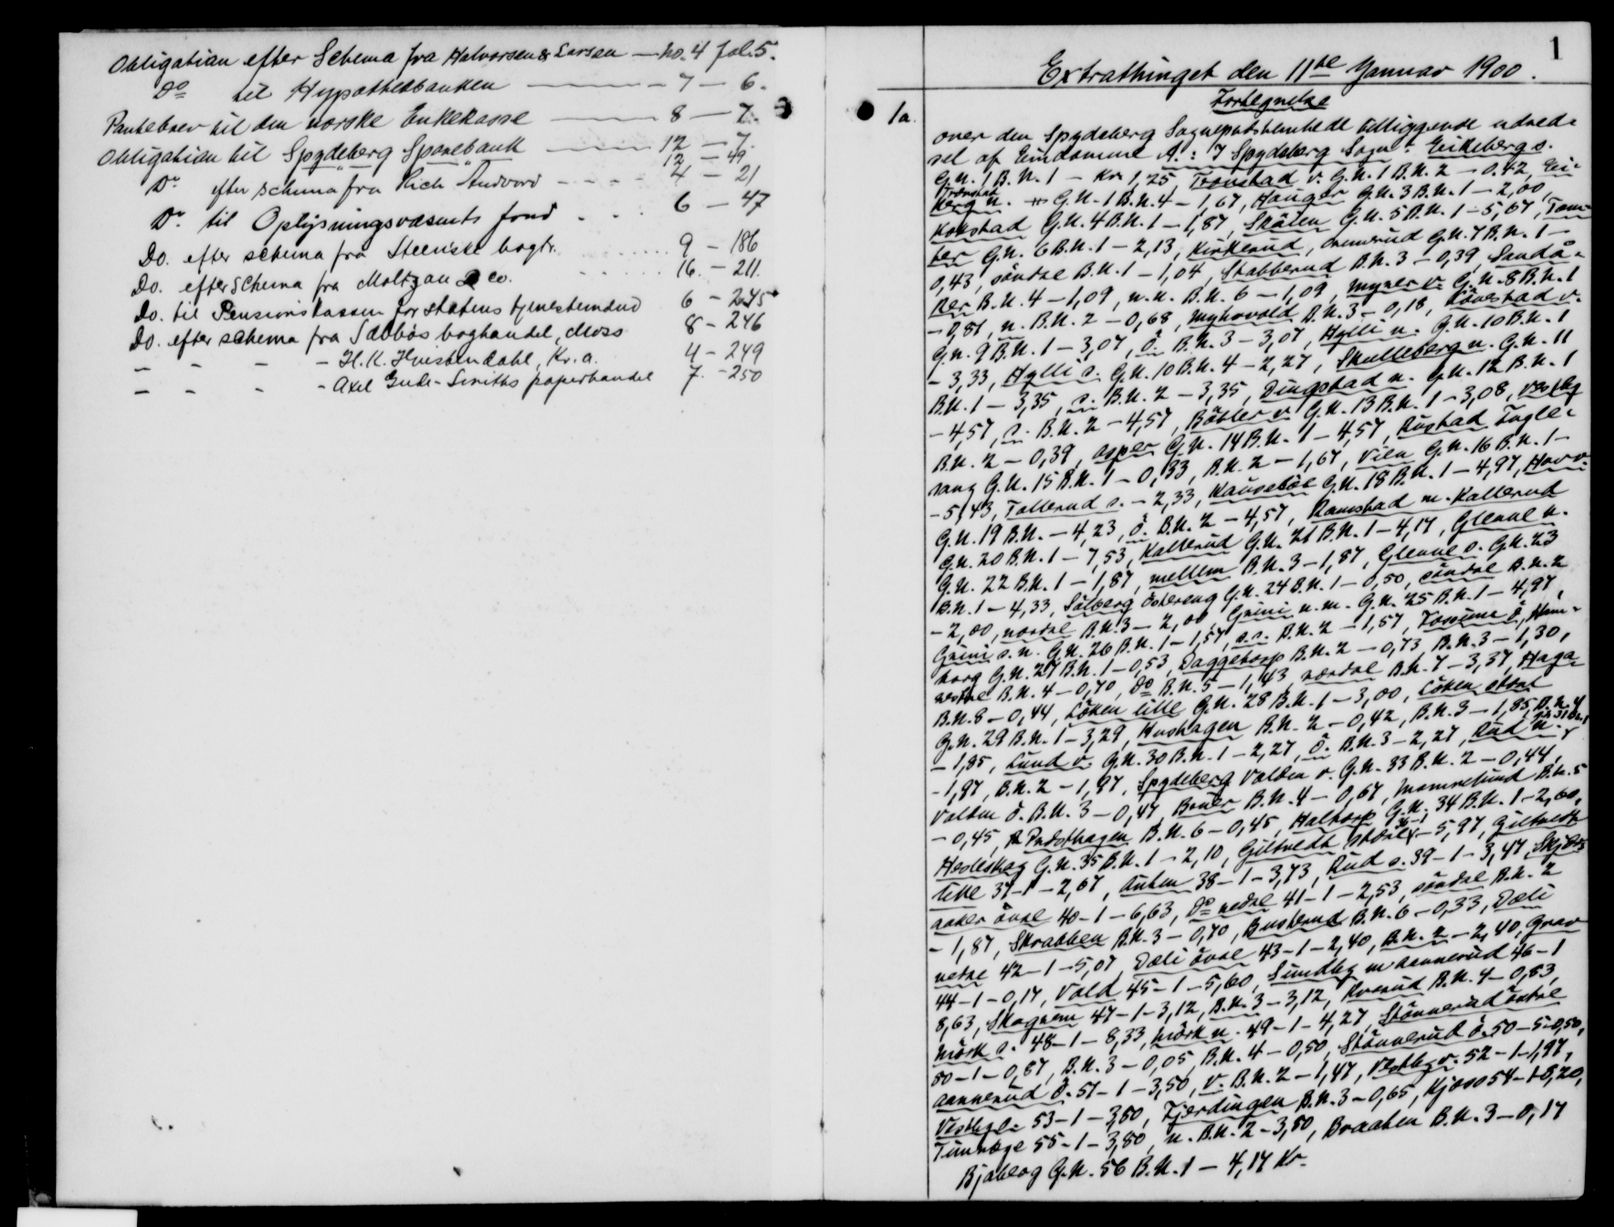 Obligation efter Schema fra Halvorsen & Larsen — No. 4 fol. 5.
Do til Hypothekbanken — 7 — 6.
Pantebrev til den norske Enkekasse — 8 — 7.
Obligation til Spydeberg Sparebank — 12 — 7.
12 — 49
Do efter schema fra Rich Andvord - - - - 4 — 21
Do til Oplysningsvæsents fond . . . 6 — 47
Do. efter schema fra Steenske bogtr. . . . . 9 - 186
Do. efter Schema fra Moltzau & co. - - - - 16. - 211.
Do. til Pensionskassen for statens tjenestemænd 6 - 245
Do. efter schema fra Sæbøs boghandel, Moss 8 - 246
- - - - H. K. Hvistendahl, Kr.a. 4 - 249
- - - - Axel Gude-Smiths papirhandel 7. - 250
1
Extrathinget den 11te Januar 1900.
1a. Fortegnelse
over den Spydeberg Sogneprestembede tilliggende udred-
sel af Eiendomme A.: I Spydeberg Sogn: Eikeberg s.
G.N. 1 B.N. 1 — Kr. 1,25 Tronstad v. G.N. 1 B.N. 2 — 0.42, Ei-
Tronstad
kerg n. G.N. 1 B.N. 4 — 1,67, Hauger G.N. 3 B.N. 1 — 2,00,
Kokstad G.N. 4 B.N. 1 — 1,87, Skulen G.N. 5 B.N. 1 — 5,67, Tom-
ter G.N. 6 B.N. 1 — 2,13, Kirkerud, G.N. 7 B.N. 1 —
0,43, söndre B.N. 1 — 1,04, Stabberud B.N. 3 — 0,39, Sandå-
ker B.N. 4 — 1,09, n.n. B.N. 6 — 1,09, Myrer v. G.N. 8 B.N. 1
— 0,81, n. B.N. 2 — 0,68, Myhrvold B.N. 3 — 0,18, Lövestad v.
G.N. 9 B.N. 1 — 3,07, Ö. B.N. 3 — 3,07, Hylli n. G.N. 10 B.N. 1
— 3,33, Hylli s. G.N. 10 B.N. 4 — 2,27, Skulleberg n. G.N. 11
B.N. 1 — 3,35, s. B.N. 2 — 3,35, Dingstad n. G.N. 12 B.N. 1
— 4,57, s. B.N. 2 — 4,57, Bötler v. G.N. 13 B.N. 1 — 3,08, Vestby
B.N. 2 — 0,39, Asper G.N. 14 B.N. 1 — 4,57, Rustad Fugle-
sang G.N. 15 B.N. 1 — 0,33, B.N. 2 — 1,67, Vien G.N. 16 B.N. 1 —
— 5,43, Tallerud s. — 2,33, G.N. 18 B.N. 1 — 4,97, Hov v.
G.N. 19 B.N. — 4,23, ö. B.N. 2 — 4,57, Ramstad m. Kallerud
G.N. 20 B.N. 1 — 7,53, Kallerud G.N. 21 B.N. 1 — 4,17, Glenne n.
G.N. 22 B.N. 1 — 1,87, mellem B.N. 3 — 1,87, Glenne s. G.N. 23
B.N. 1 — 4,33, Solberg Östereng G.N. 24 B.N. 1 — 0,50, söndre B.N. 2
— 2,00, nordre B.N. 3 — 2,00 Grini n.m. G.N. 25 B.N. 1 — 4,97,
Grini s.n. G.N. 26 B.N. 1 — 1,57, s.s. B.N. 2 — 1,57, Fossum ö, Ham-
borg G.N. 27 B.N. 1 — 0,53, Daggetorp B.N. 2 — 0,73, B.N. 3 — 1,30,
vestre B.N. 4 — 0,70, Do B.N. 5 — 1,43, nordre B.N. 7 — 3,37, Haga
B.N. 8 — 0,44, Löken lille G.N. 28 B.N. 1 — 3,00, Löken store
G.N. 29 B.N. 1 — 3,29, Kushagen B.N. 2 — 0,42, B.N. 3 — 1,85, B.N. 4
— 1,85, Lund v. G.N. 30 B.N. 1 — 2,27, Ö. B.N. 3 — 2,27, Rud n. G.N. 31 B.N. 1
— 1,97, B.N. 2 — 1,97, Spydeberg Valden v. G.N. 33 B.N. 2 — 0,44,
Valden ö. B.N. 3 — 0,47, B.N. 4 — 0,67, B.N. 5
— 0,45, Præsthagen B.N. 6 — 0,45, Haltorp G.N. 34 B.N. 1 — 2,60,
Hesleskog G.N. 35 B.N. 1 — 2,10, Giltvedt store 36-1 — 5,97, Giltvedt
lille 37 — 1 — 2,67, 38 — 1 — 3,73, Rud s. 39 — 1 — 3,47, Skjöts
aaker övre 40 — 1 — 6,63, Do nedre 41 — 1 — 2,53, söndre B.N. 2
— 1,87, Skraaben B.N. 3 — 0,70, Busterud B.N. 6 — 0,33, Dæli
nedre 42 — 1 — 5,07, Dæli övre 43 — 1 — 2,40, B.N. 2 — 2,40, Grav
44 — 1 — 0,17, Vold 45 — 1 — 5,60, Sundby m Aannerud 46 — 1
8,63, Skagnem 47 — 1 — 3,12, B.N. 3 — 3,12, Kverud B.N. 4 — 0,83,
Mörk s. 48 — 1 — 8,33, Mörk n. 49 — 1 — 4,27, Stönnerud östre
50 — 1 — 0,87, B.N. 3 — 0,05, B.N. 4 — 0,50, Stönnerud ö. 50 — 5 — 0,50,
Aannerud ö. 51 — 1 — 3,50, v. B.N. 2 — 1,47, Vestby v. 52 — 1 — 1,97,
53 — 1 — 3,80, Fjerdingen B.N. 3 — 0,65, Kjoss 54 — 1 — 8,20,
55 — 1 — 3,80, n. B.N. 2 — 3,80, Braaten B.N. 3 — 0,17
Bjaberg G.N. 56 B.N. 1 — 4,17 Kr.